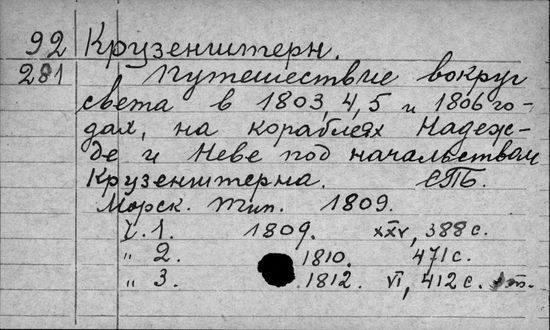 92 Крузенштерн.
281 Путешествие вокруг
света в 1803, 4, 5 и 1806 го-
дах, на кораблях Надеж-
де и Неве под начальством
Крузенштерна. СПБ.
Морск. тип. 1809.
Ч. 1. 1809. XXV, 388 с.
" 2. 1810. 471 с.
" 3. 1812. VI, 412 с.